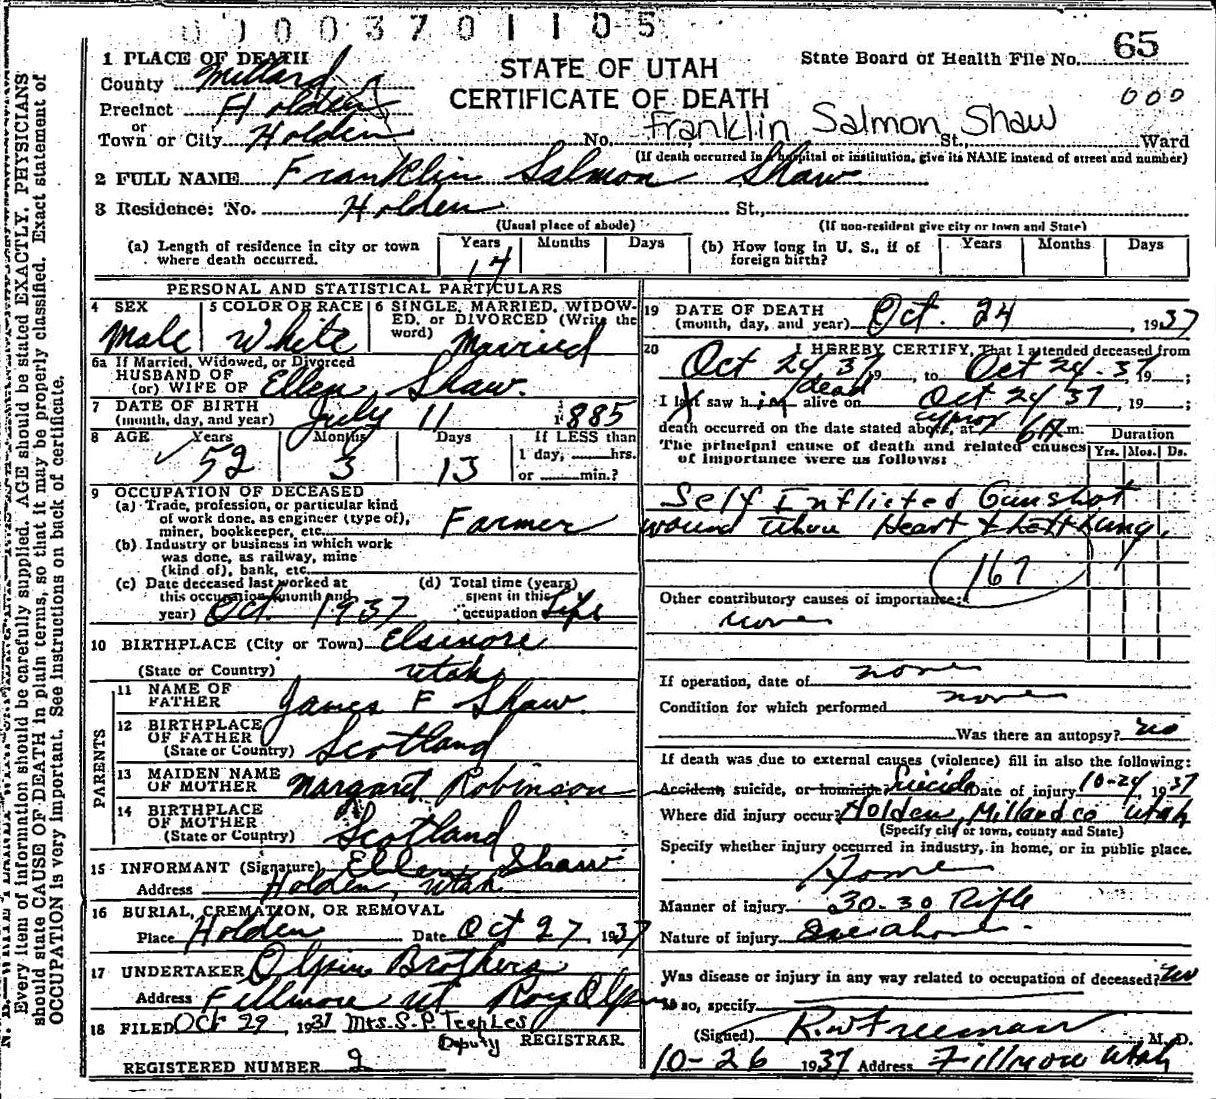 00003701105
1 PLACE OF DEATH
County Millard
Precinct Holden
or
Town or City Holden
STATE OF UTAH
CERTIFICATE OF DEATH
State Board of Health File No. 65
000
Franklin Salmon Shaw
No. St., Ward
(If death occurred in a hospital or institution, give its NAME instead of street and number)
2 FULL NAME Franklin Salmon Shaw
3 Residence: No. Holden St.,
(Usual place of abode) (If non-resident give city or town and State)
(a) Length of residence in city or town where death occurred. Years 14 Months Days
(b) How long in U. S., if of foreign birth? Years Months Days
PERSONAL AND STATISTICAL PARTICULARS
4 SEX Male
5 COLOR OR RACE White
6 SINGLE, MARRIED, WIDOWED, or DIVORCED (Write the word) Married
6a If Married, Widowed, or Divorced
HUSBAND OF
(or) WIFE OF Ellen Shaw.
7 DATE OF BIRTH
(month, day, and year) July 11 1885
8 AGE Years Months Days If LESS than
52 3 13 1 day, hrs.
or min.?
9 OCCUPATION OF DECEASED
(a) Trade, profession, or particular kind
of work done, as engineer (type of),
miner, bookkeeper, etc. Farmer
(b) Industry or business in which work
was done, as railway, mine
(kind of), bank, etc.
(c) Date deceased last worked at
this occupation (month and
year) Oct. 1937
(d) Total time (years)
spent in this
occupation Life
10 BIRTHPLACE (City or Town) Elsinore
(State or Country) Utah
PARENTS
11 NAME OF FATHER James F Shaw.
12 BIRTHPLACE OF FATHER
(State or Country) Scotland
13 MAIDEN NAME OF MOTHER Margaret Robinson
14 BIRTHPLACE OF MOTHER
(State or Country) Scotland
15 INFORMANT (Signature) Ellen Shaw
Address Holden, Utah
16 BURIAL, CREMATION, OR REMOVAL
Place Holden Date Oct 27, 1937
17 UNDERTAKER Olpin Brothers
Address Fillmore Ut Roy Olpin
18 FILED Oct 29, 1937 Mrs. S. P. Teeples
Deputy REGISTRAR
REGISTERED NUMBER 2
19 DATE OF DEATH
(month, day, and year) Oct. 24, 1937
20 I HEREBY CERTIFY, That I attended deceased from
Oct 24 37 19, to Oct 24-37, 19 ;
I last saw him alive on dead Oct 24 37, 19 ;
death occurred on the date stated above, at approx 6 A m.
The principal cause of death and related causes
of importance were as follows:
Duration
Yrs. Mos. Ds.
Self Inflicted Gunshot
wound Heart & Left Lung.
167
Other contributory causes of importance:
none
If operation, date of none
Condition for which performed none
Was there an autopsy? no
If death was due to external causes (violence) fill in also the following:
Accident, suicide, or homicide Suicide Date of injury 10-24, 1937
Where did injury occur? Holden, Millard co Utah
(Specify city or town, county and State)
Specify whether injury occurred in industry, in home, or in public place.
Home
Manner of injury 30-30 Rifle
Nature of injury See above.
Was disease or injury in any way related to occupation of deceased? no
If so, specify
(Signed) R. W Freeman M. D.
10-26 1937 Address Fillmore Utah
Every item of information should be carefully supplied. AGE should be stated EXACTLY. PHYSICIANS
should state CAUSE OF DEATH in plain terms, so that it may be properly classified. Exact statement of
OCCUPATION is very important. See instructions on back of certificate.